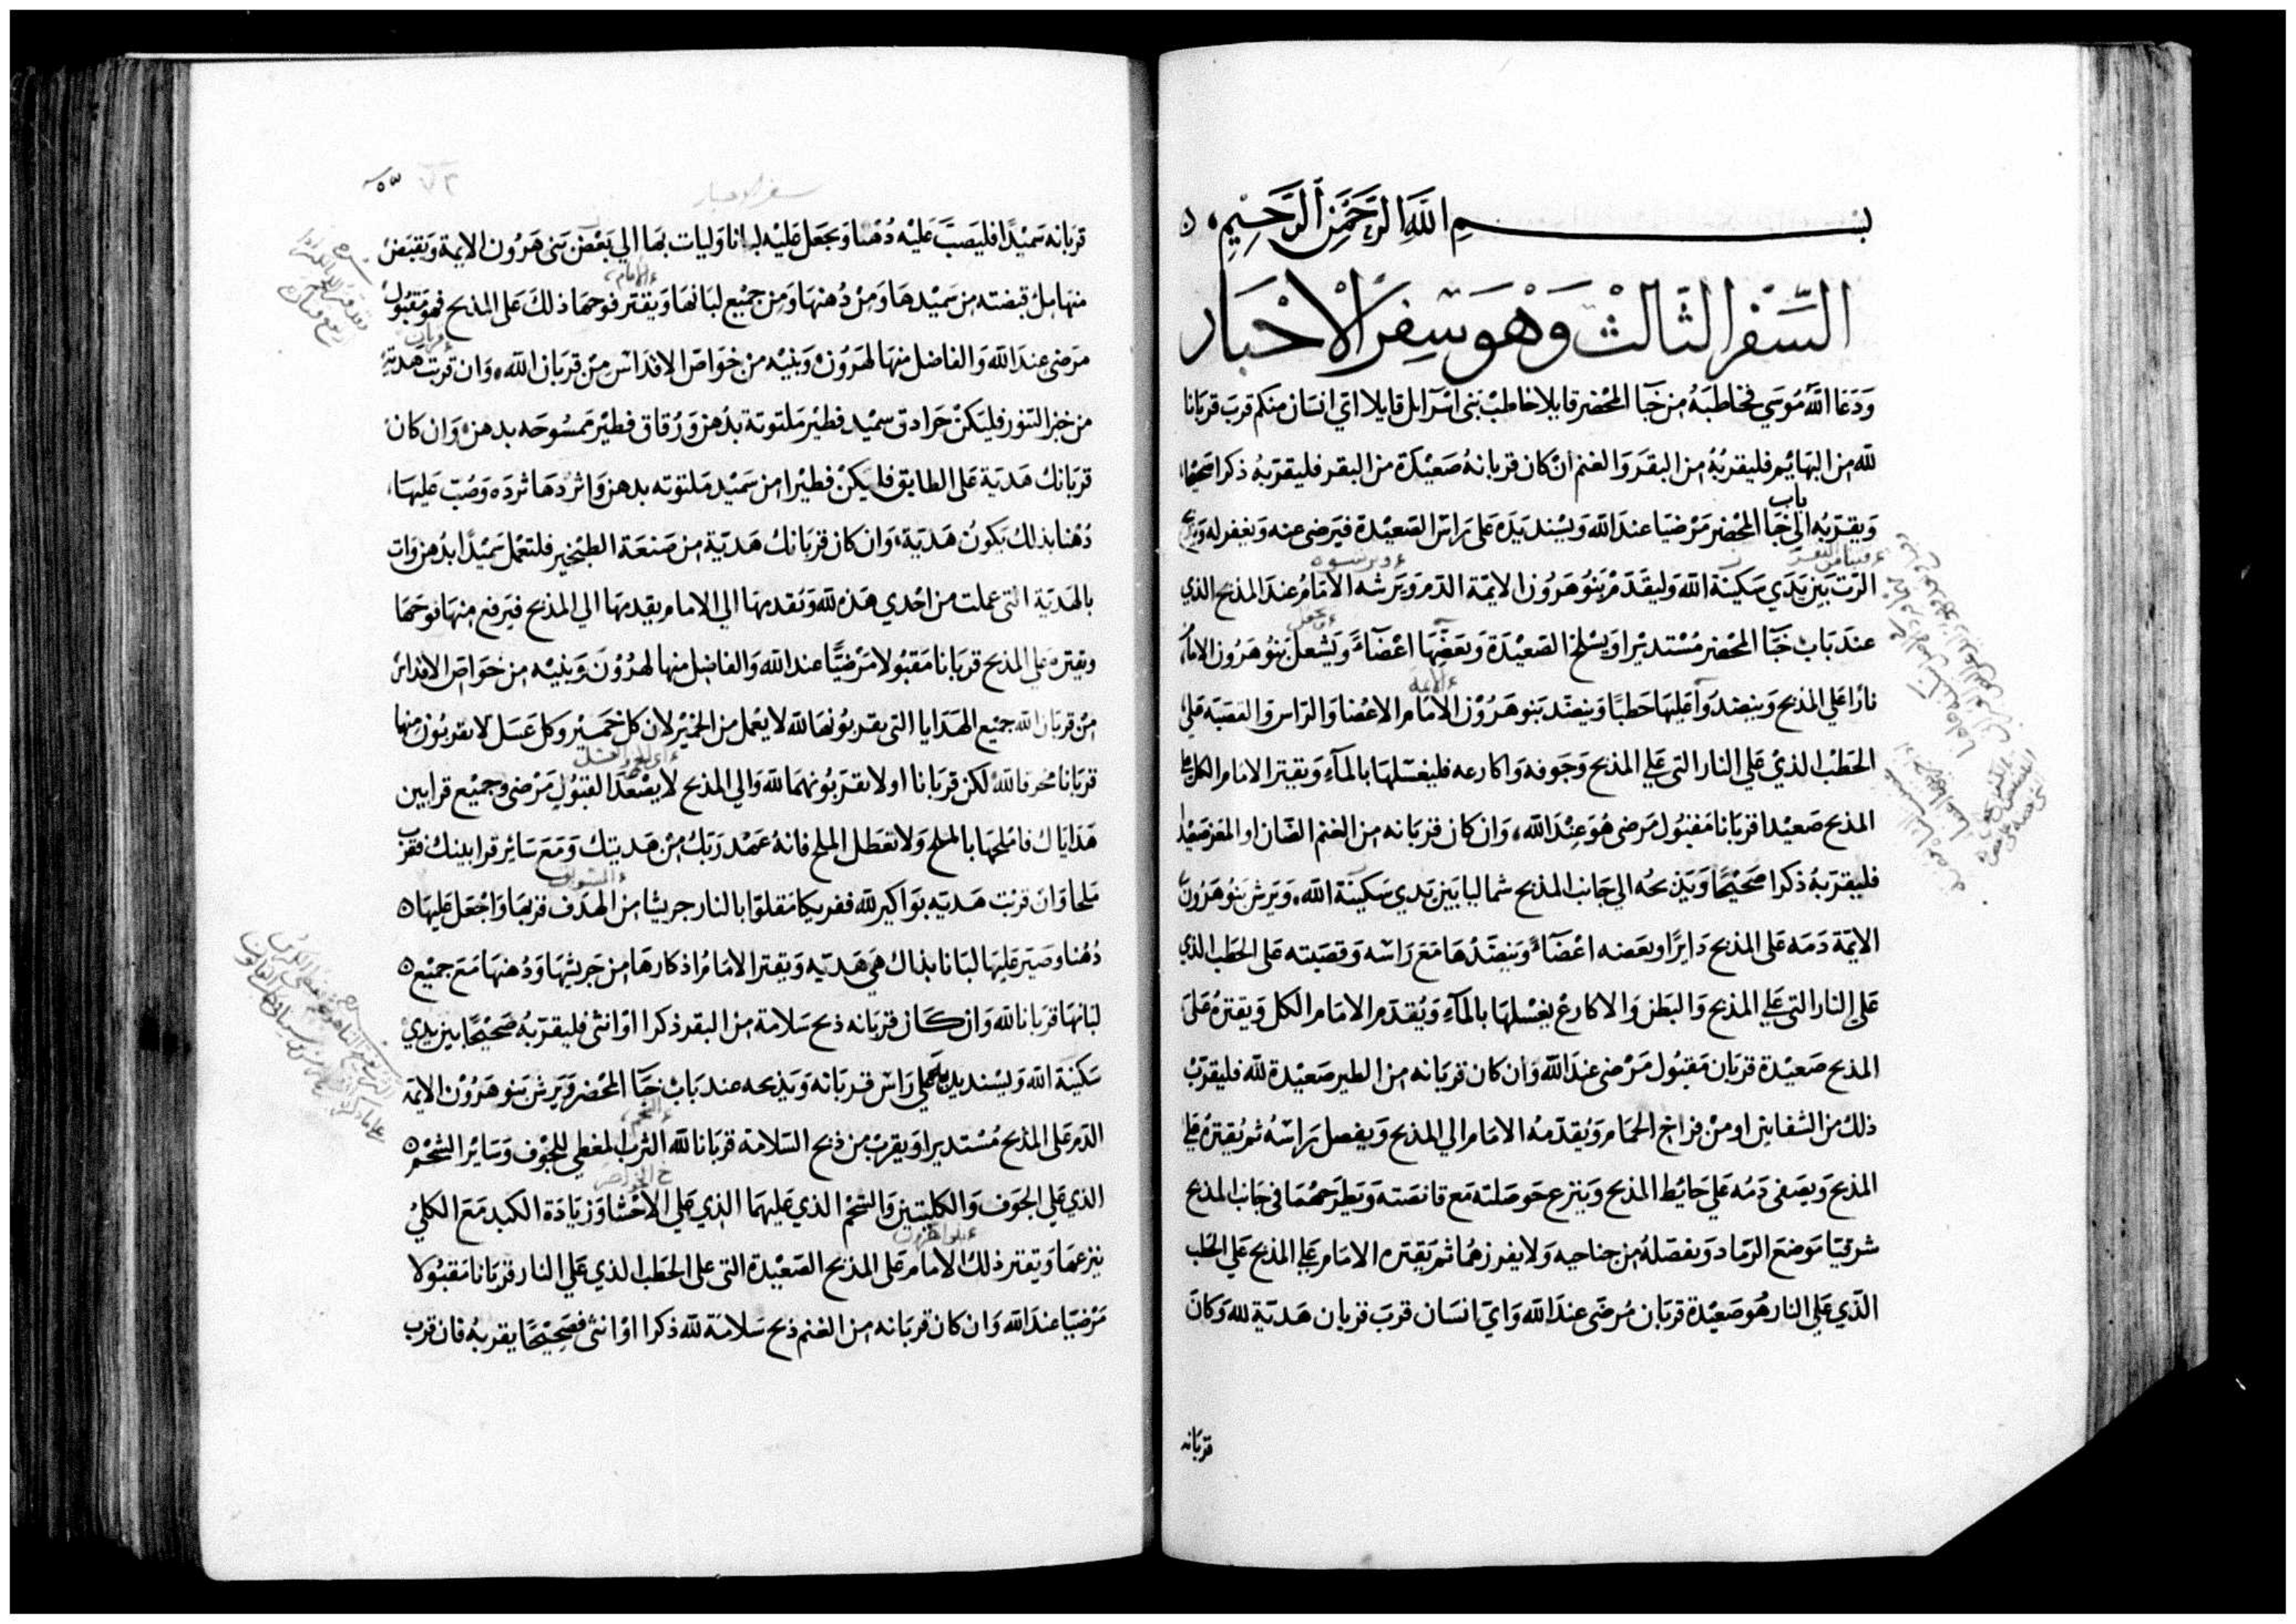 بسم الله الرحمن الرحيم
السفر الثالث وهو سفر الاحبار
وَدَعَا الله مُوسَى فخاطبَهُ من خبَآ المحْضر قايلا خاطبْ بنى اسرآئل قايلا اى انسَان منكم قربَ قربَانا
لله من البهَايم فليقربُهُ من البقَر وَالغنم انْ كان قربانهُ صَعيْدَة من البقر فليقربَهُ ذكرا صَحيْحا
وَيقربُه الى باب خبَا المحْضر مَرْضيَا عندَ الله وَيسْند يَدَه عَلى رَاسَ الصَعيْدة فيَرضى عنه وَيغفر له
الرَت بَين يَدَي سَكينَة الله وَليقَدمْ بَنوُ هَرُون الايمَة الدَم وَيَرشه الامَامُ عندَ المذبح الذي
عندَ بَابْ خبَآ المحْضر مُسْتديْرا وَيسْلخ الصَعيْدَة وَيَعَضّهَا اعْضَآءً وَيَشعلَ بنوُ هَرُون الامَام
نارًا عَلي المذبح وَينضدوَا عَليهَا حَطبًا وَينضّد بَنو هَرُوْن الامَام الاعْضَا وَالرَاس وَالقصَبَة عَلى
الحَطَبْ الذيْ عَلي النار التى عَلي المذبح وَجَوفه وَاكارعه فليغسَلهَا بالمآءِ وَيقتر الامَام الكل عَلى
المذبح صَعيْدا قربَانا مَقبُول مَرضى هُوَ عنْدَ الله، وَان كان قربَانه من الغنم الضَان او المعَز صَعيْدا
فليقرّبَهُ ذكرا صَحيْحًا وَيَذبحُه الى جَانب المذبح شماليا بَين يَدي سَكينَة الله، وَيَرش بَنوُ هَرُون
الايمَة دَمَه عَلى المذبح دَايرًا وَيعَضه اعْضَآءً وَينضّدُهَا مَعَ رَاسَه وَقصَبته عَلى الحَطَب الذي
عَلي النار التى عَلي المذبح وَالبَطن وَالاكارعْ يغسْلهَا بالمآءِ وَيُقدّم الامَام الكل وَيقترهُ عَلَى
المذبح صَعيْدة قربَان مَقبُول مَرْضى عندَ الله وَان كان قربَانه من الطير صَعيْدة لله فليقرّبْ
ذلكَ من الشفانين او منْ فرَاخ الحمَام وَيُقدّمهُ الامَام الى المذبح وَيفصل رَاسَهُ ثم يُقترهُ عَلى
المذبحَ وَيصَفى دَمُه عَلي حَايط المذبح وَينزع حَوصَلته مَع قانصَته وَيَطرَحهُمَا فى جَانب المذبح
شرقيَا مَوضعَ الرمَاد وَيفصَلهُ من جناحيه وَلا يفرزهُمَا ثم يَقتره الامَام عَلي المذبح عَلي الحَطب
الذي عَلي النار هُوَ صَعيْدة قربَان مُرضَى عندَ الله وَايّ انسَان قربَ قربان هَديَة لله وَكانَ
قربَانه
سفر الاحبار
قربَانه سَميْدًا فليَصَبَّ عَليْه دُهْنا وَيجعَل عَليْه لبانا وَليات بهَا الى بَعْض بَنى هَرُون الايمة وَيقبَضْ
منهَا ملُ قبضته من سَميْدهَا وَمنْ دُهنهَا وَمن جميْع لبَانهَا وَيقتر فوحمَا ذلكَ عَلى المذبح فهوَ مَقبُول
مَرضى عندَ الله وَالفاضل منهَا لهَرُونْ وَبنيْه منْ خَوَاصّ الاقدَاسْ منْ قربَان الله، وَان قربت هَديَة
من خبز التنور فليَكنْ جَرادق سميْد فطيْر مَلتوتة بدُهن وَرُقاق فطيْر ممسُوحَه بدهن وَان كان
قربَانكَ هَديَة عَلى الطابق فليَكنْ فطيْرا من سَميْد مَلتوته بدهن وَاثردهَا ثردَه وَصُبّ عَليهَا
دُهْنا بذلكَ يَكونُ هَديَة، وَان كان قربَانكَ هَديّة من صَنعَة الطنجير فلتعْمل سَميْدًا بدُهن وَات
بالهَديَة التى عملت من احْدي هَذه لله وَيُقدمهَا الى الامام يقدمهَا الى المذبح فيَرفع منهَا فوحمَا
ويقتره عَلي المذبح قربَانا مَقبُولا مَرْضيًا عند الله وَالفاضل منها لهرُوْنَ وَبنيْه من خَوَاصّ الاقداسْ
منْ قربَان الله جميْع الهَدَايا التى يقربُونهَا لله لا يعْمل من الخميْر لان كل خمَيْر وكل عَسَل لا يقربُون منها
قربَانا محْرقا لله لكن قربَانا اولا يقرَبُونهمَا لله والي المذبح لا يصْعَدَا لقبُول مَرْضى وجميْع قرابين
هَدَايَاك فامْلحهَا بالملح وَلا تعَطل الملح فانهُ عَهْد رَبكَ منْ هَديتك وَمَعَ سَائِر قرابينك فقرب
مَلحا وَان قرَّبت هَديَه بَوَاكير لله ففريكا مَقلوّا بالنار جريشا من الهدَف قربهَا وَاجْعَل عَليهَا
دُهْنا وصَيّر عَليهَا لبَانا بذاك هيَ هَديَه وَيقتر الامَامُ اذكارهَا من جَريشهَا وَدُهنهَا مَعَ جميْع
لبَانهَا قربَانا لله وَان كان قربَانه ذبح سَلامَة من البقر ذكرا اوْ انثى فليقرّبهُ صَحيْحًا بَين يَدي
سَكيْنَة الله وَيسْند يده عَلي رَاسْ قربَانه وَيَذبحه عند بَابْ خبَا المحْضر وَيَرشْ بَنو هَرُوْن الايمَة
الدَم عَلى المذبح مُسْتديرا وَيقربْ من ذبح السَلامَة قربَانا لله الثربْ المغطي للجَوْف وَسَايْر الشحْم
الذي عَلي الجَوف وَالكليتين وَالشحْم الذي عَليهمَا الذي عَلي الاحْشَا وَزيَادَة الكبد مَعَ الكليْ
ينزعهَا وَيقتر ذلكَ الامَام عَلى المذبح الصَعيْدة التى عَلى الحَطَب الذي عَلي النار قربَانا مَقبُولا
مَرْضيّا عندَ الله وَان كان قربَانه من الغنم ذبح سَلامَة لله ذكرا اوْ انثى فصَحيْحًا يقربهُ فان قرب